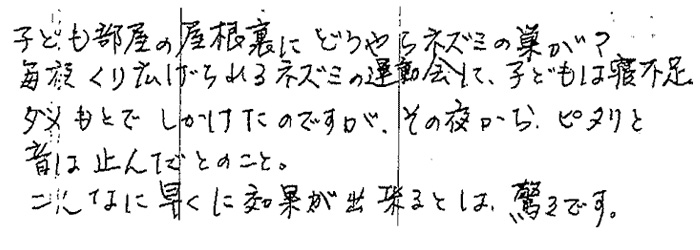 子ども部屋の屋根裏にどうやらネズミの巣が?
毎夜くり広げられるネズミの運動会に、子どもは寝不足。
ダメもとでしかけたのですが、その夜から、ピタリと
音は止んだとのこと。
こんなに早くに効果が出来るとは、驚きです。